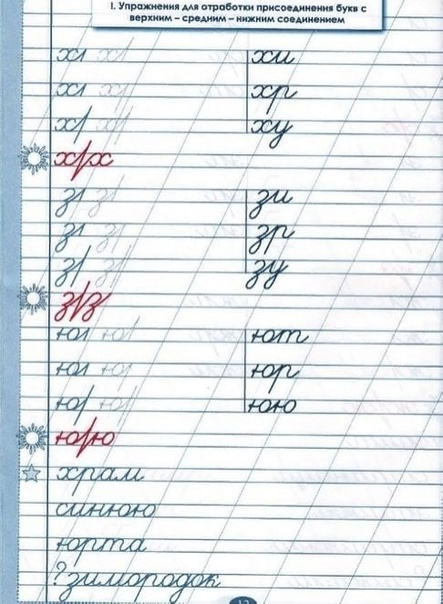 I. Упражнения для отработки присоединения букв с
верхним – средним – нижним соединением
хи
хр
ху
х/х
зи
зр
зу
з/з
ют
юр
юю
ю/ю
храм
синюю
юрта
?зимородок